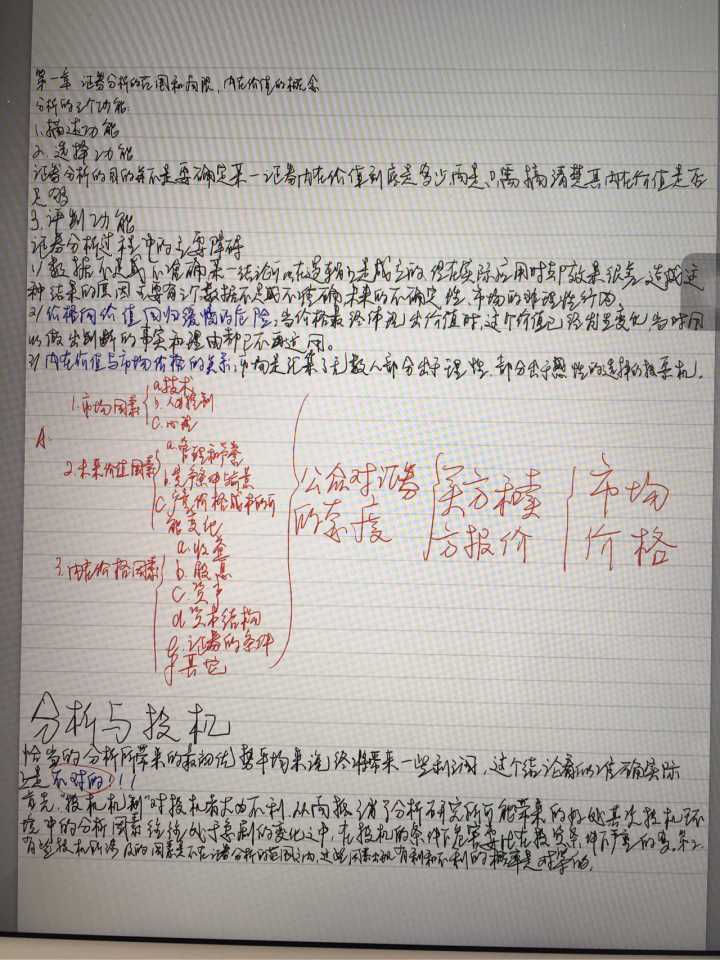 第一章 证券分析的范围和局限,内在价值的概念
分析的三个功能:
1.描述功能
2.选择功能
证券分析的目的并不是要确定某一证券内在价值到底是多少,而是只需搞清楚其内在价值是否
足够
3.评判功能
证券分析过程中的主要障碍
1)数据不足或不准确 某一结论可以在逻辑上是成立的,但在实际应用时却效果很差,造成这
种结果的原因主要有三个数据不足或不准确,未来的不确定性,市场的非理性行为,
2)价格向价值回归缓慢的危险;当价格最终体现出价值时,这个价值已经发生变化,当时用
以做出判断的事实和理由都已不再适用。
3)内在价值与市场价格的关系;市场是汇集了无数人部分出于理性,部分出于感性的选择的投票机.
A.
1.市场因素
a.技术
b.人为控制
c.心理
2.未来价值因素
a.管理和声誉
b.竞争条件与前景
c.产量价格成本的可
能变化
3.内在价格因素
a.收益
b.股息
c.资产
d.资本结构
e.证券的条件
f.其它
公众对证券
的态度
买方和卖
方报价
市场
价格
分析与投机
恰当的分析所带来的最初优势平均来说终将带来一些利润,这个结论看似准确实际
是不对的!!!
首先,"投机机制"对投机者大为不利,从而抵消了分析研究所可能带来的好处其次投机环
境中的分析因素往往处于急剧的变化之中,在投机的条件下危害要比在投资条件下严重的多.第三
有些投机所涉及的因素是不在证券分析的范围之内,这些因素出现有利和不利的概率是对等的,